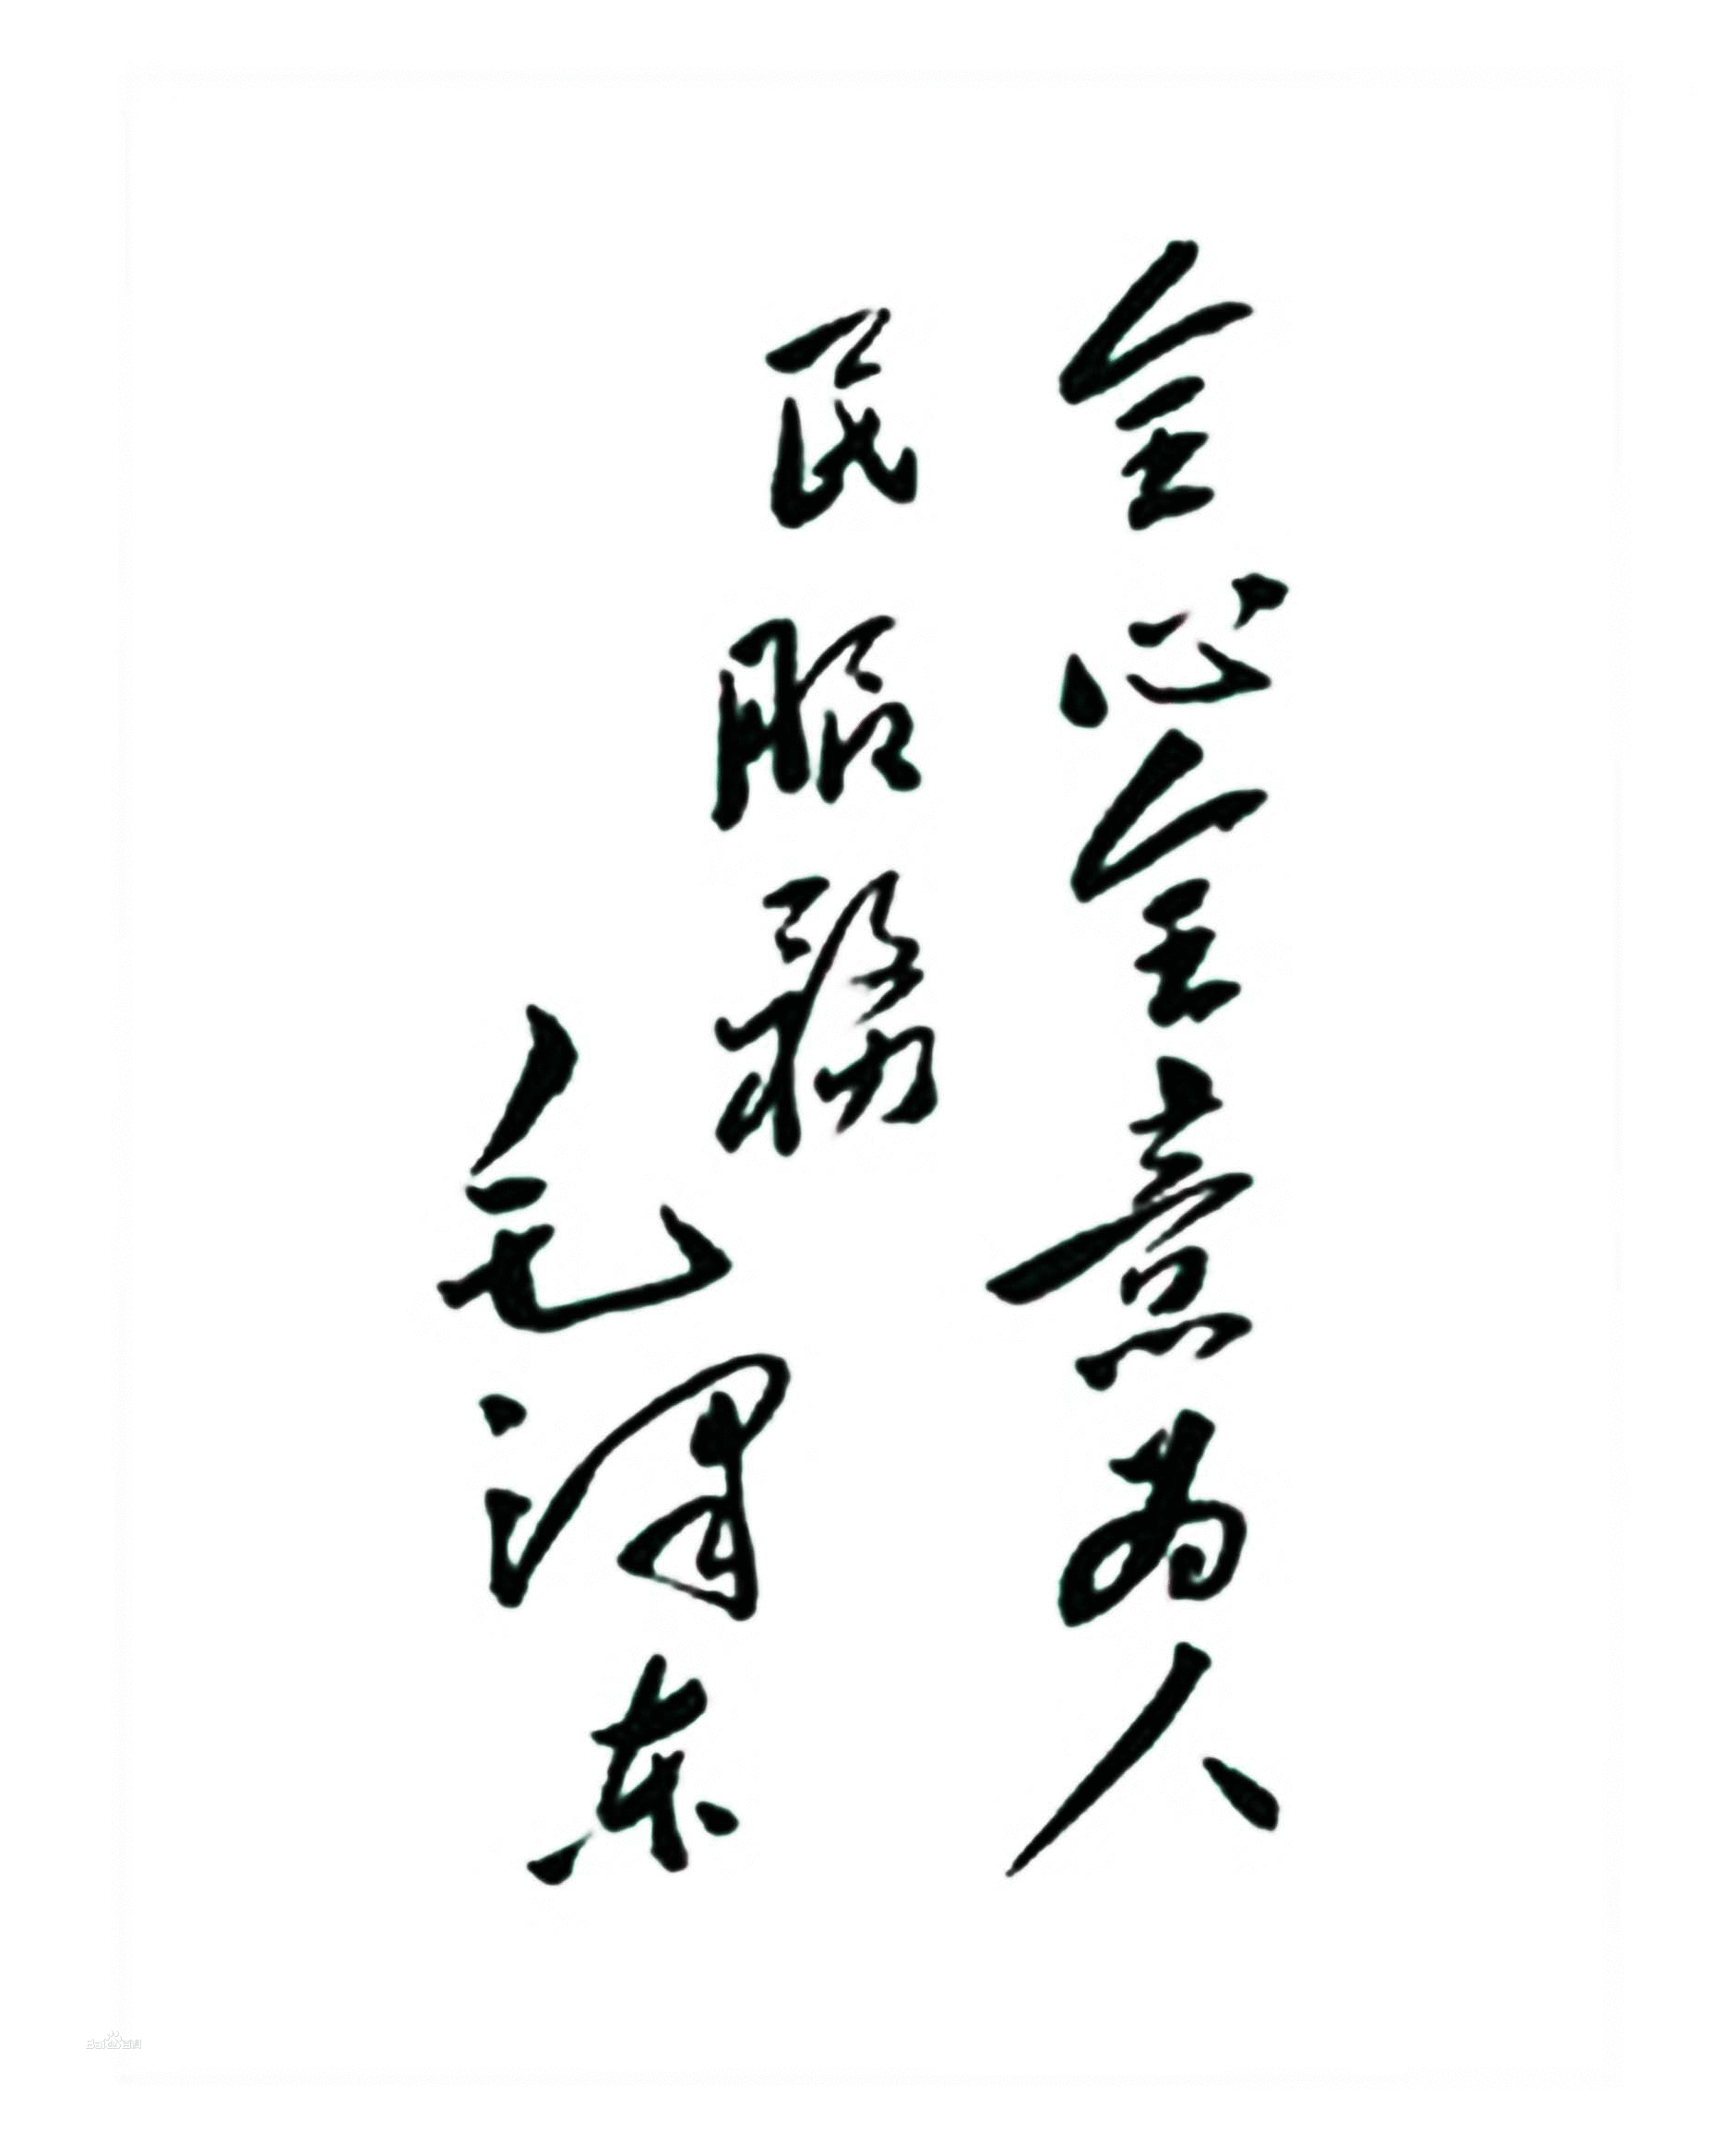 全心全意为人
民服務
毛泽东
Baidu百科